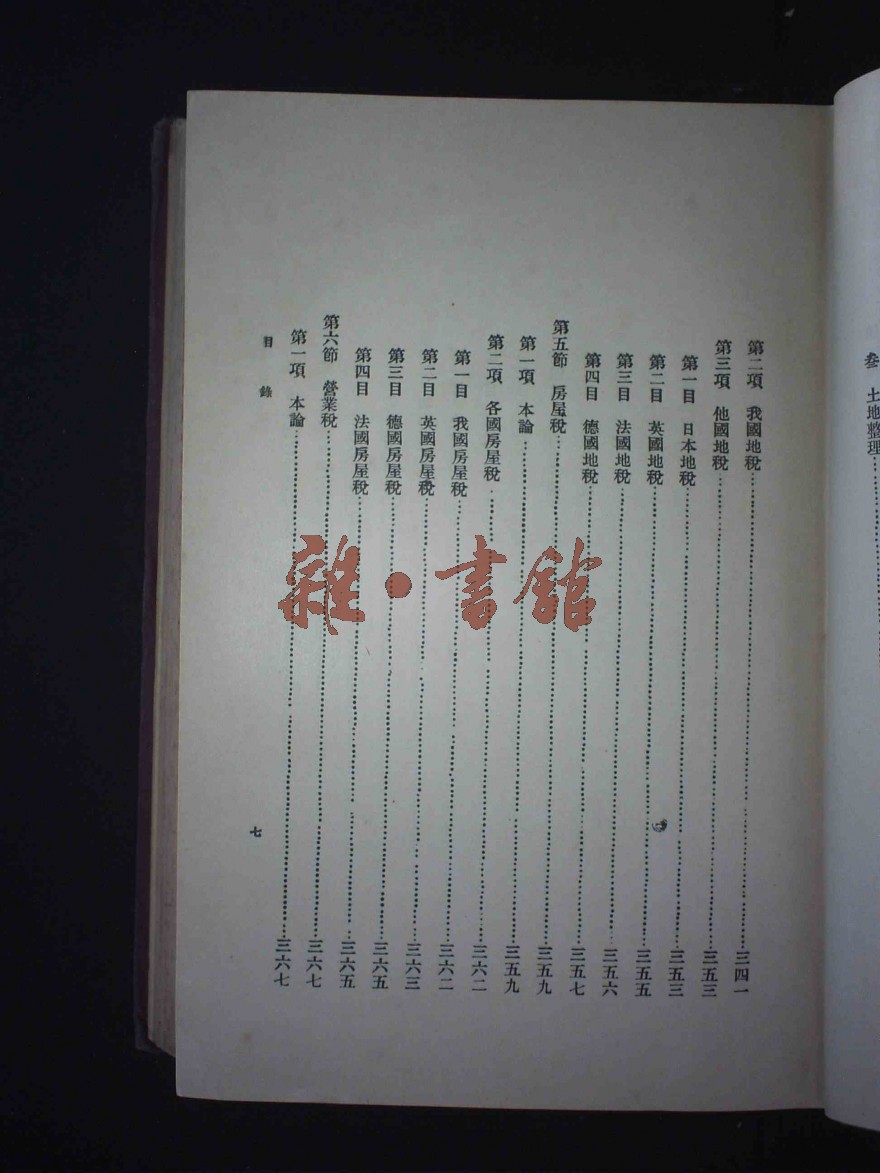 叁　土地整理
第二項　我國地稅……三四一
第三項　他國地稅……三五三
第一目　日本地稅……三五三
第二目　英國地稅……三五五
第三目　法國地稅……三五六
第四目　德國地稅……三五七
第五節　房屋稅……三五九
第一項　本論……三五九
第二項　各國房屋稅……三六二
第一目　我國房屋稅……三六二
第二目　英國房屋稅……三六三
第三目　德國房屋稅……三六五
第四目　法國房屋稅……三六五
第六節　營業稅……三六七
第一項　本論……三六七
目錄
七
雜·書館